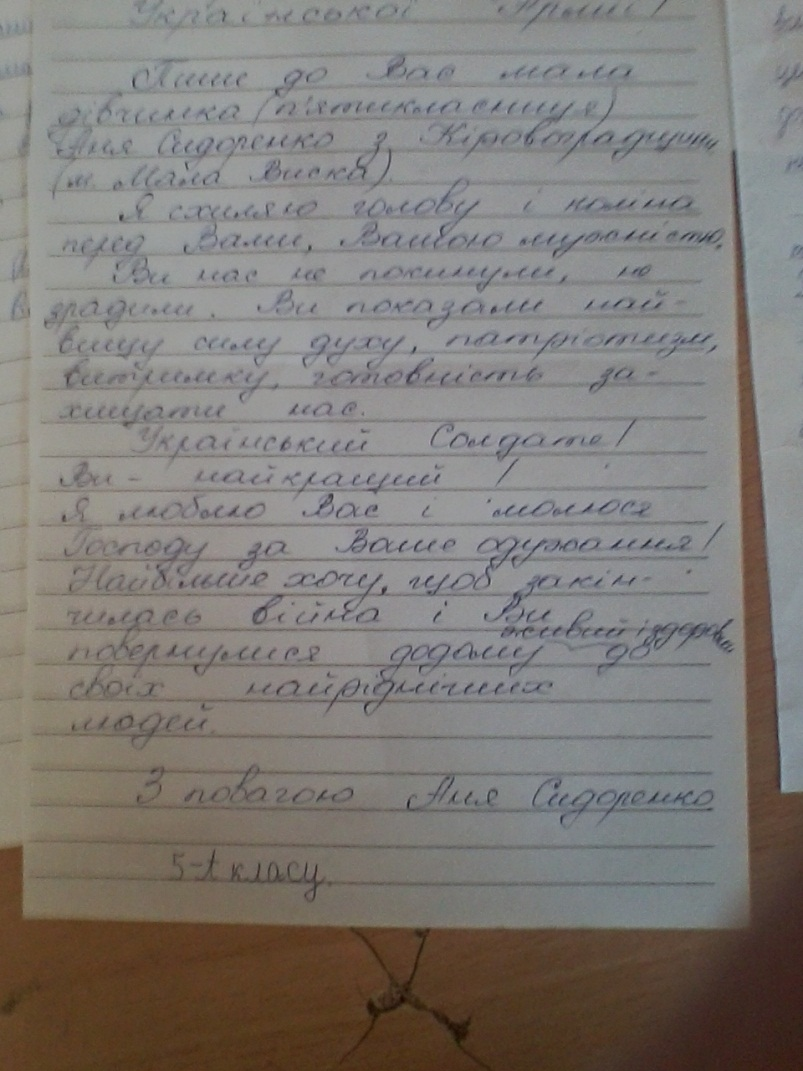 Української Армії!
Пише до Вас мала
дівчинка (п'ятикласниця)
Аня Сидоренко з Кіровоградщини
(м. Мала Виска).
Я схиляю голову і коліна
перед Вами, Вашою мужністю.
Ви нас не покинули, не
зрадили. Ви показали най-
вищу силу духу, патріотизм,
витримку, готовність за-
хищати нас.
Український Солдате!
Ви - найкращий !
Я люблю Вас і молюся
Господу за Ваше одужання!
Найбільше хочу, щоб закін-
чилась війна і Ви
живий і здоровий
повернулися додому до
своїх найрідніших
людей.
З повагою Аня Сидоренко
5-А класу.